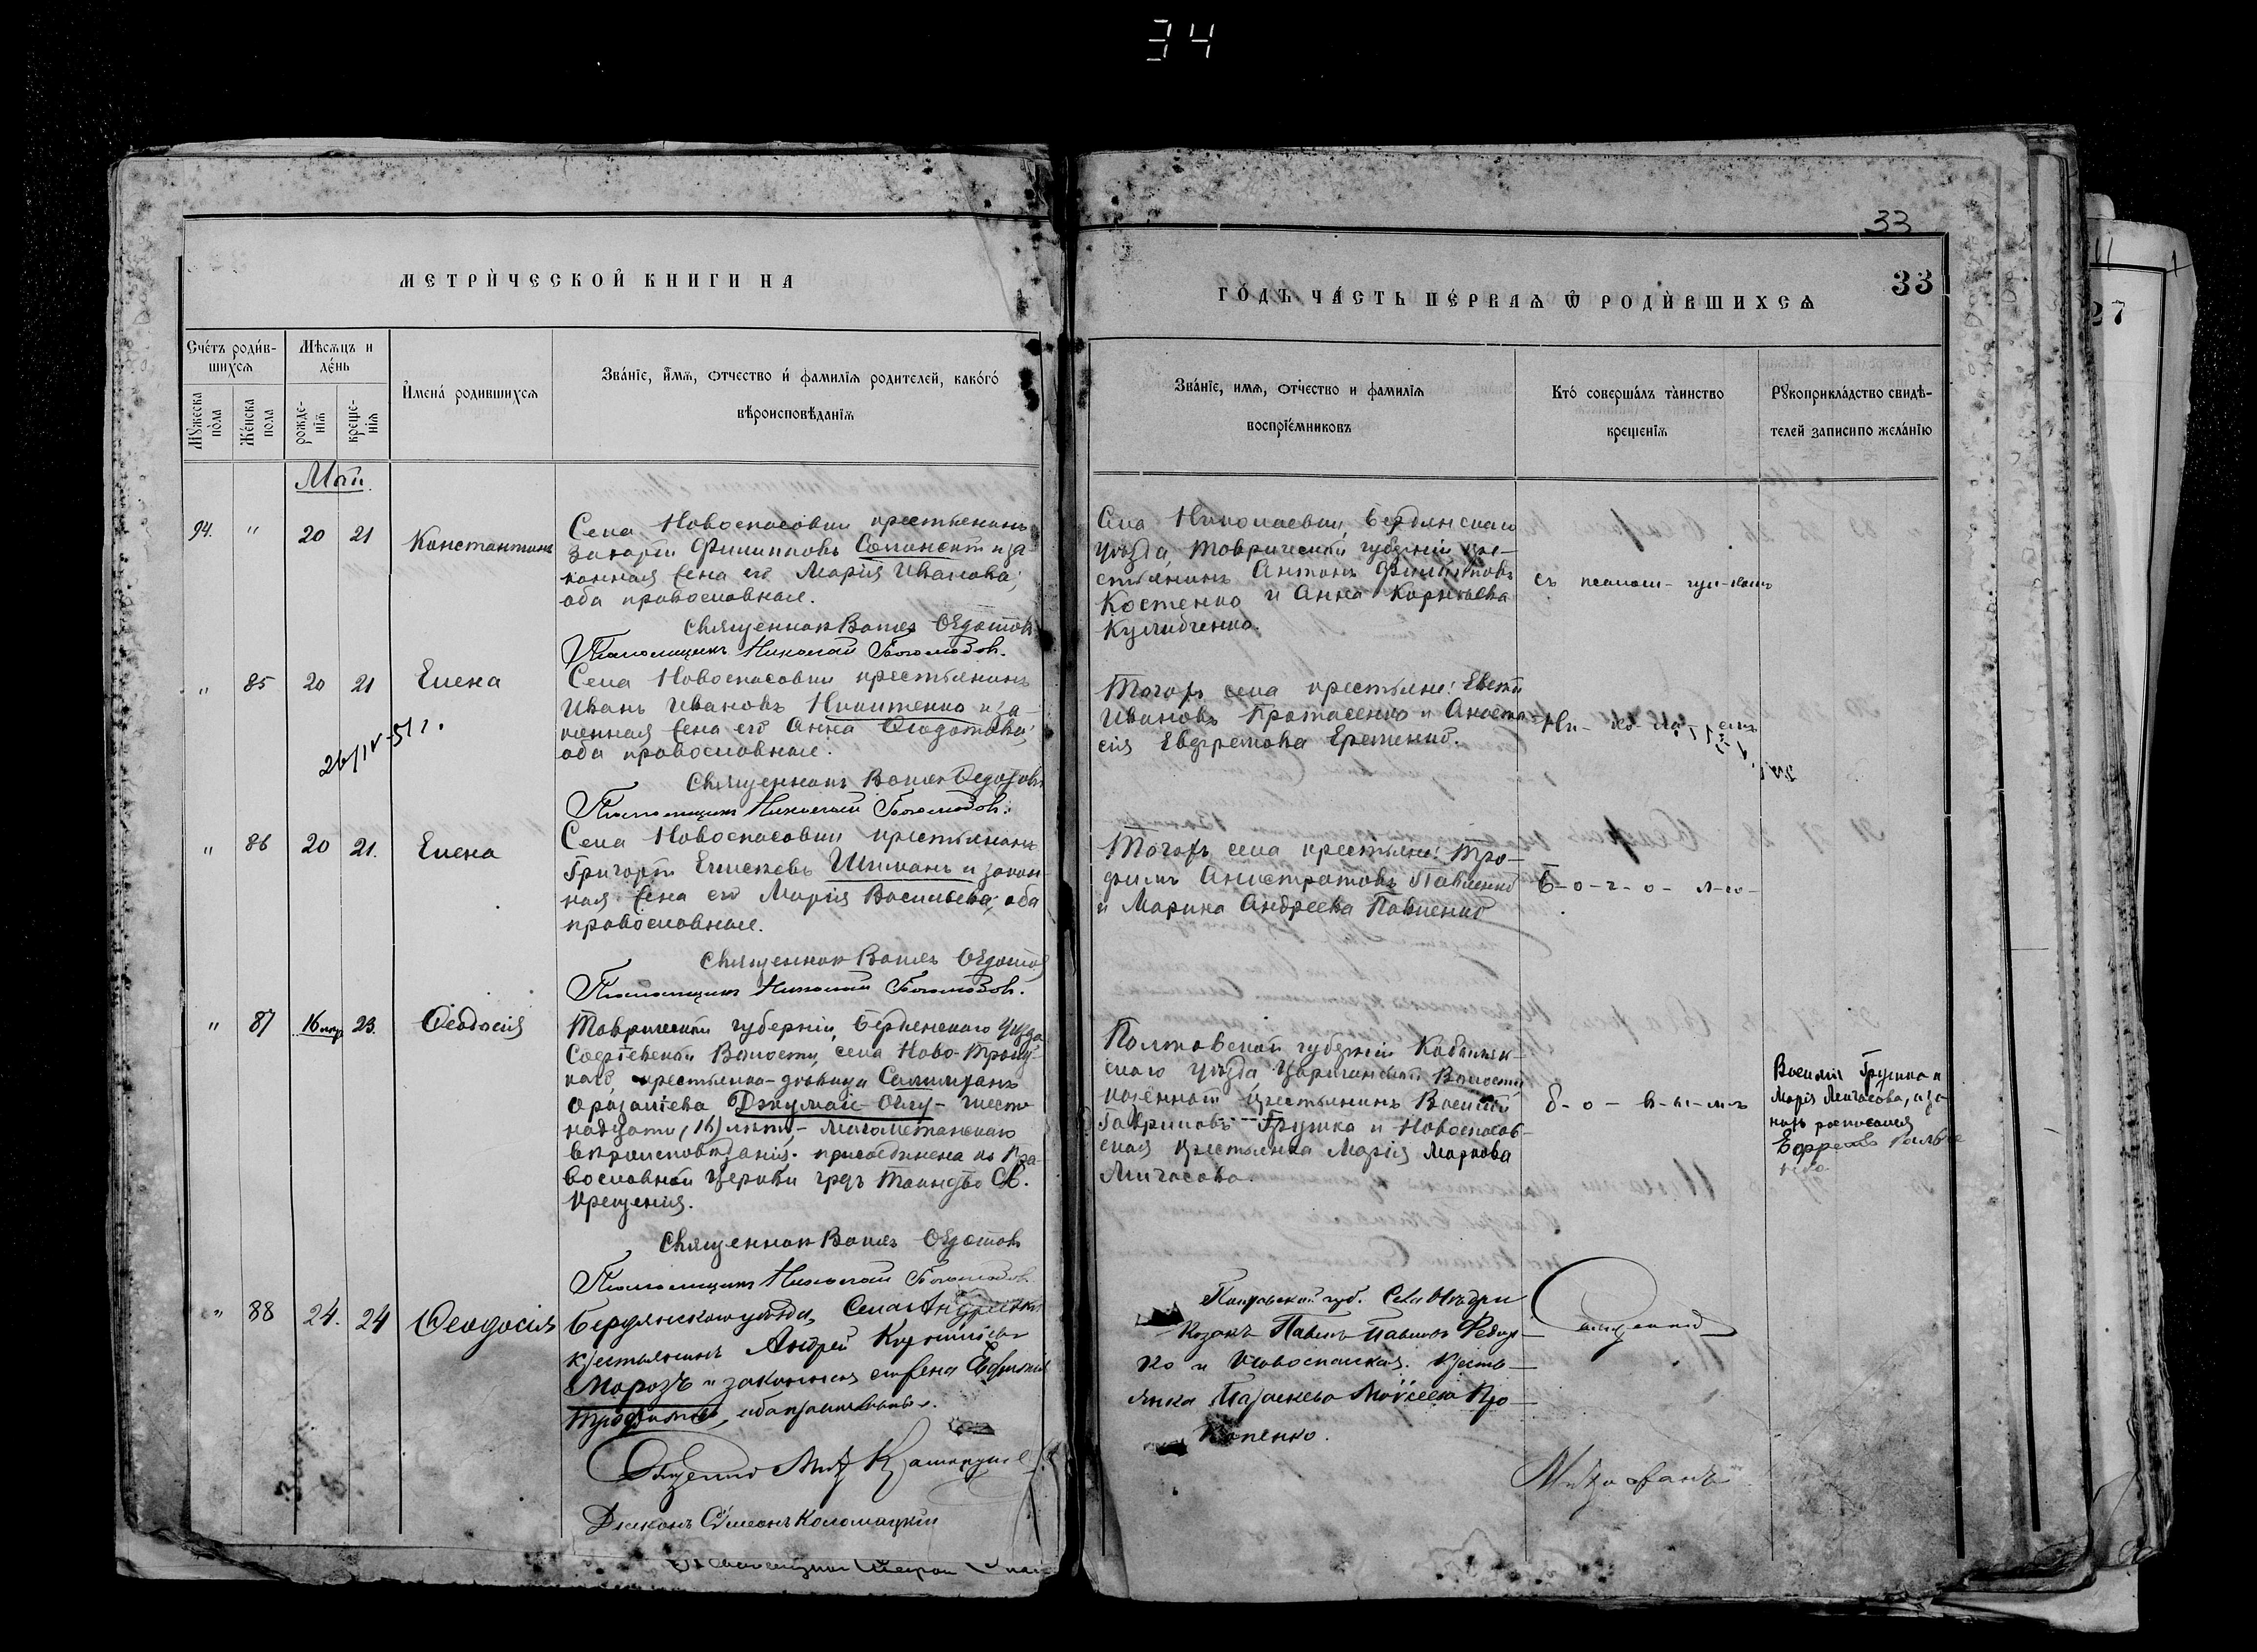 34
МЕТРИ́ЧЕСКОЙ КНИГИ НА
Сче́тъ роди́в-
шихсѧ
Мѣсѧцъ и
де́нь
Мꙋжеска
по́ла
Же́нска
пола
рожде-
нїѧ
креще-
нїѧ
И҆мена́ родившихсѧ
Зва́нїе, и҆́мѧ, ѻтчество и҆ фамилїѧ родителей, како́гѡ
вѣроисповѣданїѧ
Май.
94. " 20 21 Константинъ
Села Новоспасовки крестьянинъ
Захарій Филипповъ и за-
конная жена его Марія Иванова;
оба православные.
Священник Федотов
Псаломщикъ Николай Боголюбов.
" 85 20 21 Елена
26/IV-51 г.
Села Новоспасовки крестьянинъ
Иванъ Ивановъ Никитенко и за-
конная жена его Анна Феодотова;
оба православные.
Священникъ Федотовъ
Псаломщикъ Николай Боголюбов.
" 86 20 21. Елена
Села Новоспасовки крестьянинъ
Григорій Елисеевъ Шиманъ и закон-
ная жена его Марія Васильева; оба
православные.
Священник Федотов
Псаломщикъ Николай Боголюбов.
" 87 23. Феодосія
Таврической губерніи, Бердянскаго уѣзда
Волости, села Ново-Троиц-
каго, крестьянка-дѣвица
Джумай-Оглу- шест-
надцати (16) лѣтъ,- магометанскаго
вѣроисповѣданія. присоединена къ Пра-
вославной Церкви чрезъ Таинство Св.
Крещенія.
Священник Федотовъ
Псаломщикъ Николай Боголюбов
" 88 24. 24 Феодосія
Бердянского уѣзда, Села Андреевки
крестьянинъ Андрей
Морозъ и законная его жена
Трофимова, оба православные.
Діаконъ Симеонъ Коломацкій
33
ГО́ДЪ ЧА́СТЬ ПЕ́РВАѦ Ѡ҆ РОДИ́ВШИХСѦ
33
Зва́нїе, имѧ, ѻтчество и фамилїѧ
воспрїе́мниковъ
Кто́ соверша́лъ та́инство
креще́нїѧ
Рꙋкоприкла́дство свидѣ-
телей записи по жела́нїю
Села Николаевки Бердянскаго
уѣзда, Таврической губерніи кре-
стьянинъ Антонъ Филипповъ
Костенко и Анна Корнѣева
съ псалом-щи-комъ
Тогожъ села крестьяне:
Ивановъ Протасенко и Анаста-
сія Евфремова Еременко.
Ни-ко-ла-емъ
Тогожъ села крестьяне: Тро-
фимъ Павленко
и Марина Андреева Павленко
Б-о-г-о-л-ю-
Полтавской губерніи Кобыляк-
скаго уѣзда Царичанской Волости
казенный крестьянинъ Василій
Гавриловъ Грушка и Новоспасов-
ская крестьянка Марія Маркова
Лигасова.
б-о-в-ы-м-ъ
Василій Грушка и
Марія Лигасова, а за
нихъ росписался
Полтавской губ. Села
Козакъ Павелъ Павловъ Федор-
ко и Новоспаская. Кресть-
янка Параскева Моисеева Про-
копенко.
Священникъ
Митрофанъ